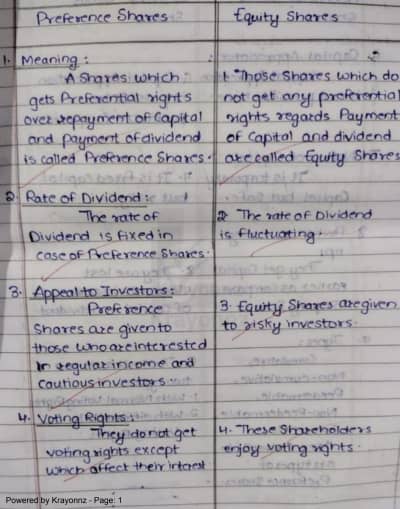 Preference Shares
Equity Shares
1. Meaning :
A Shares which
gets Preferential rights
over repayment of Capital
and payment of dividend
is called Preference Shares.
1. Those Shares which do
not get any preferential
rights regards Payment
of Capital and dividend
are called Equity Shares
2. Rate of Dividend :
The rate of
Dividend is fixed in
case of Preference Shares.
2. The rate of Dividend
is fluctuating.
3. Appeal to Investors :
Preference
Shares are given to
those who are interested
in regular income and
cautious investors
3. Equity Shares are given
to risky investors.
4. Voting Rights :
They do not get
voting rights except
which affect their
4. These Shareholders
enjoy voting rights.
Powered by Krayonnz - Page: 1